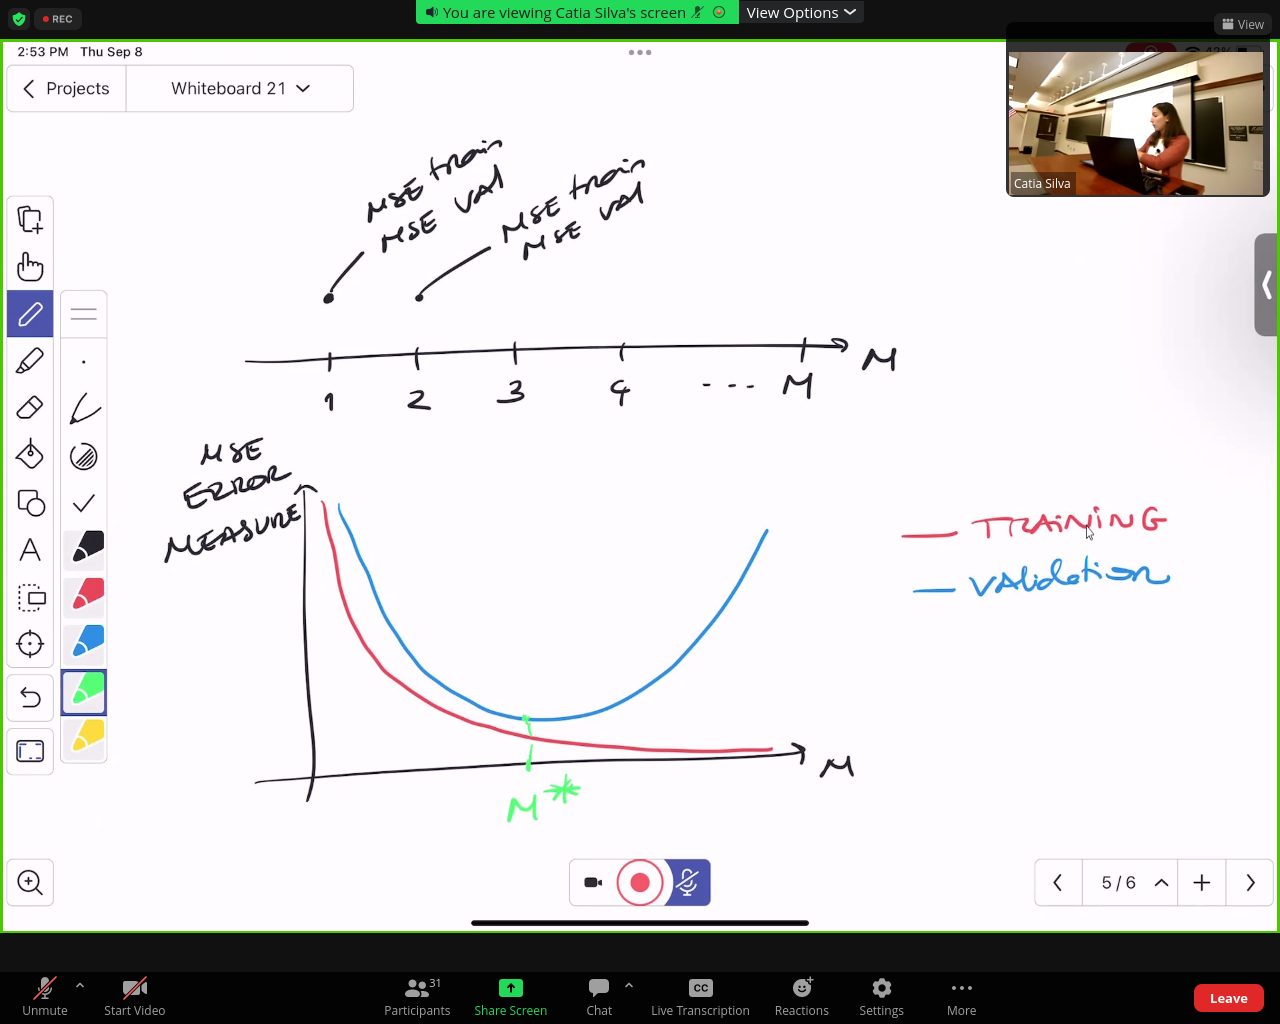 REC
You are viewing Catia Silva's screen
View Options
View
2:53 PM Thu Sep 8
Projects
Whiteboard 21
Catia Silva
MSE train
MSE val
MSE train
MSE val
1 2 3 4 --- M
M
MSE
ERROR
MEASURE
TRAINING
Validation
M
M*
A
5 / 6
Unmute
Start Video
Participants
31
Share Screen
Chat
CC
Live Transcription
Reactions
Settings
More
Leave